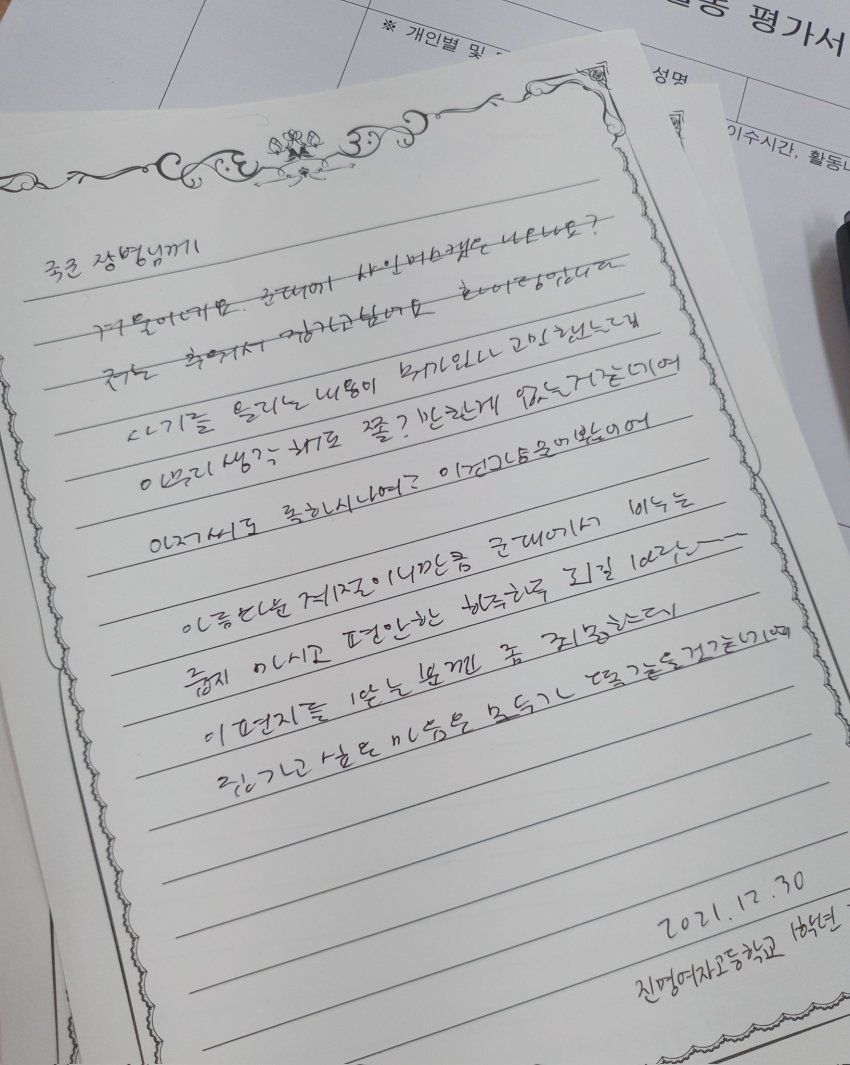 활동 평가서
※ 개인별 및
성명
이수시간, 활동내
국군 장병님께
겨울이네요. 군대에서 샤인머스캣은 나오나요?
저는 추워서 집가고싶네요 화이팅입니다
사기를 올리는 내용이 뭐가있나 고민했는데
아무리 생각해도 쫄? 만한게 없는거같네여
아저씨도 록하시나여?
아름다운 계절이니만큼 군대에서 비누는
줍지 마시고 편안한 하루하루 되길 바랍니다
이 편지를 받는분껜 좀 죄송한데
집가고 싶은 마음은 모두가 똑같을것같네여
2021.12.30
진명여자고등학교 1학년